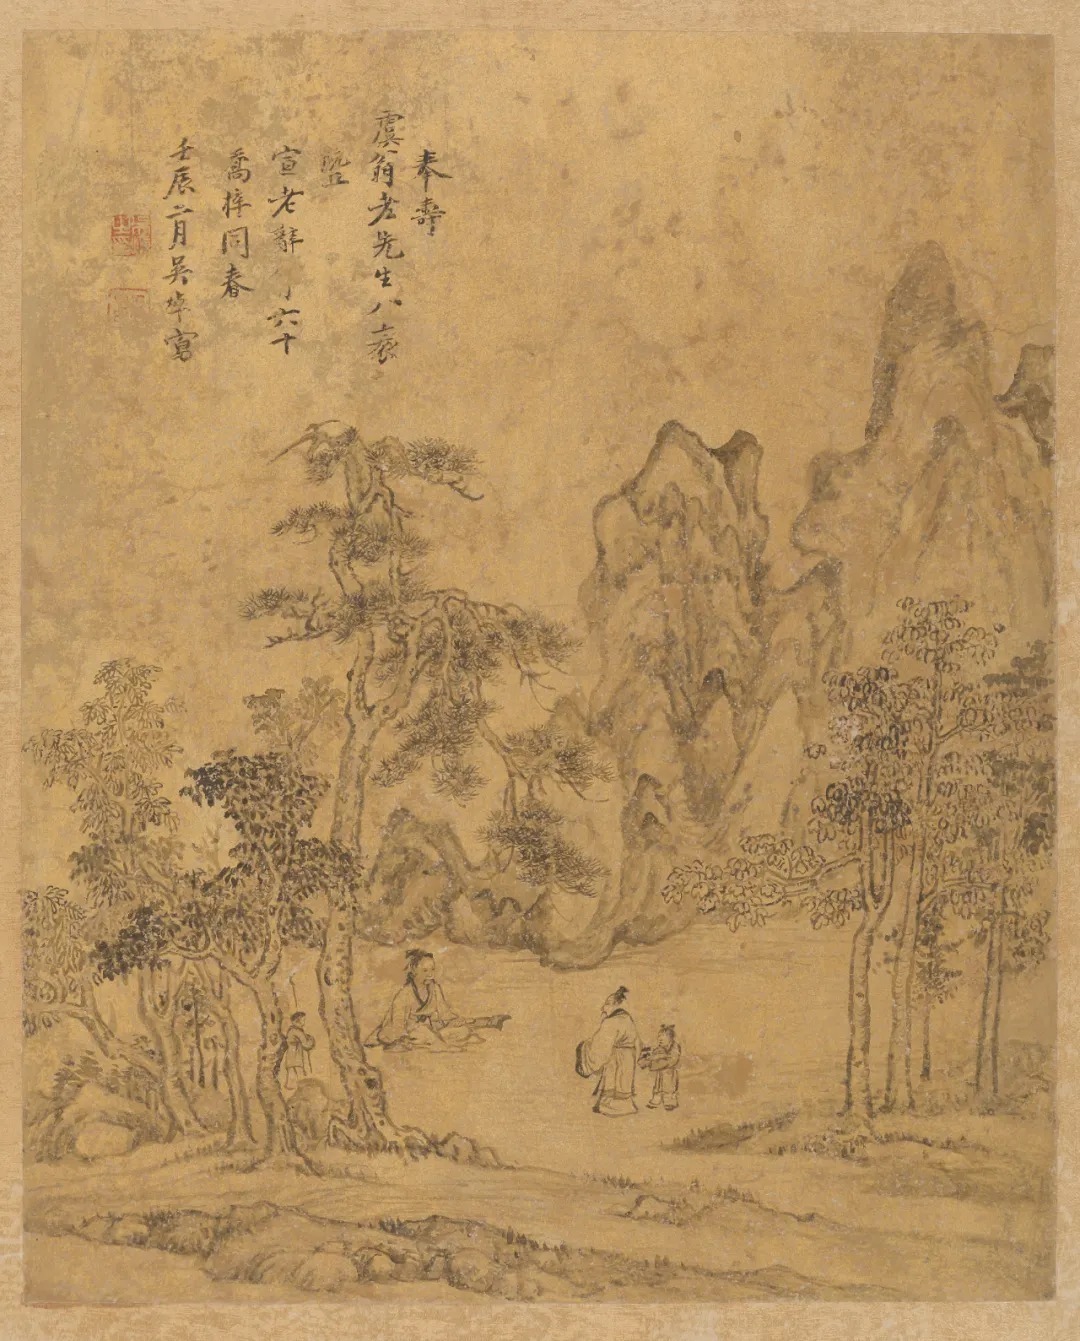 奉壽
虞翁老先生八袠
暨
宣老辭六十
喬梓同春
壬辰二月吳焯寫